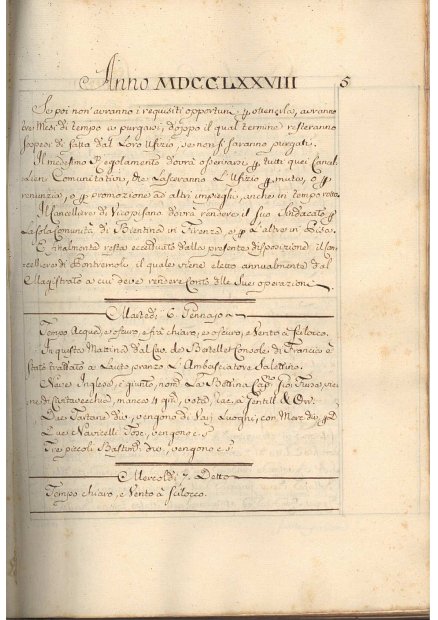 Anno MDCCLXXVIII 5
Se poi non avranno i requisiti opportuni p ottenerla, avranno
tre Mesi di tempo a purgarsi, doppo il qual termine resteranno
sospesi di fatto dal Loro Ufizio, se non si saranno purgati.
Il medesimo Regolamento dovrà osservarsi p tutti quei Cancel
lieri Comunitativi, che Lasceranno L'Ufizio p muta, o p
renunzia, o p promozione ad altri impieghi, anche in tempo
Il Cancelliere di Vicopisano dovrà rendere il suo Sindacato p
La sola Comunità di Bientina in Firenze, e p L'altre in Pisa.
E finalmente resta eccettuato dalla presente disposizione il Can
celliere di Pontremoli il quale viene eletto annualmente dal
Magistrato a cui deve rendere Conto delle Sue operazioni
Martedì 6. Gennajo
Tempo Acqua, e oscuro, e frà chiaro, e oscuro, e Vento a Scilocco.
In questa Mattina dal Console di Francia è
stato trattato a Lauto pranzo L'Ambasciatore Salettino.
Nave Inglese, è giunta, nomta La Bettina Capno
ne di Civitavecchia, manca gni, vota, rac.a Jentill & Orr.
Due Tartane div.e, vengono di Varj Luoghi, con Merc. div.e p
Due Navicelli Tosc., vengono c. s.
Tre piccoli Bastim.ti div.i, vengono c. s.
Mercoldì 7. Detto
Tempo chiaro, e Vento à Scilocco.